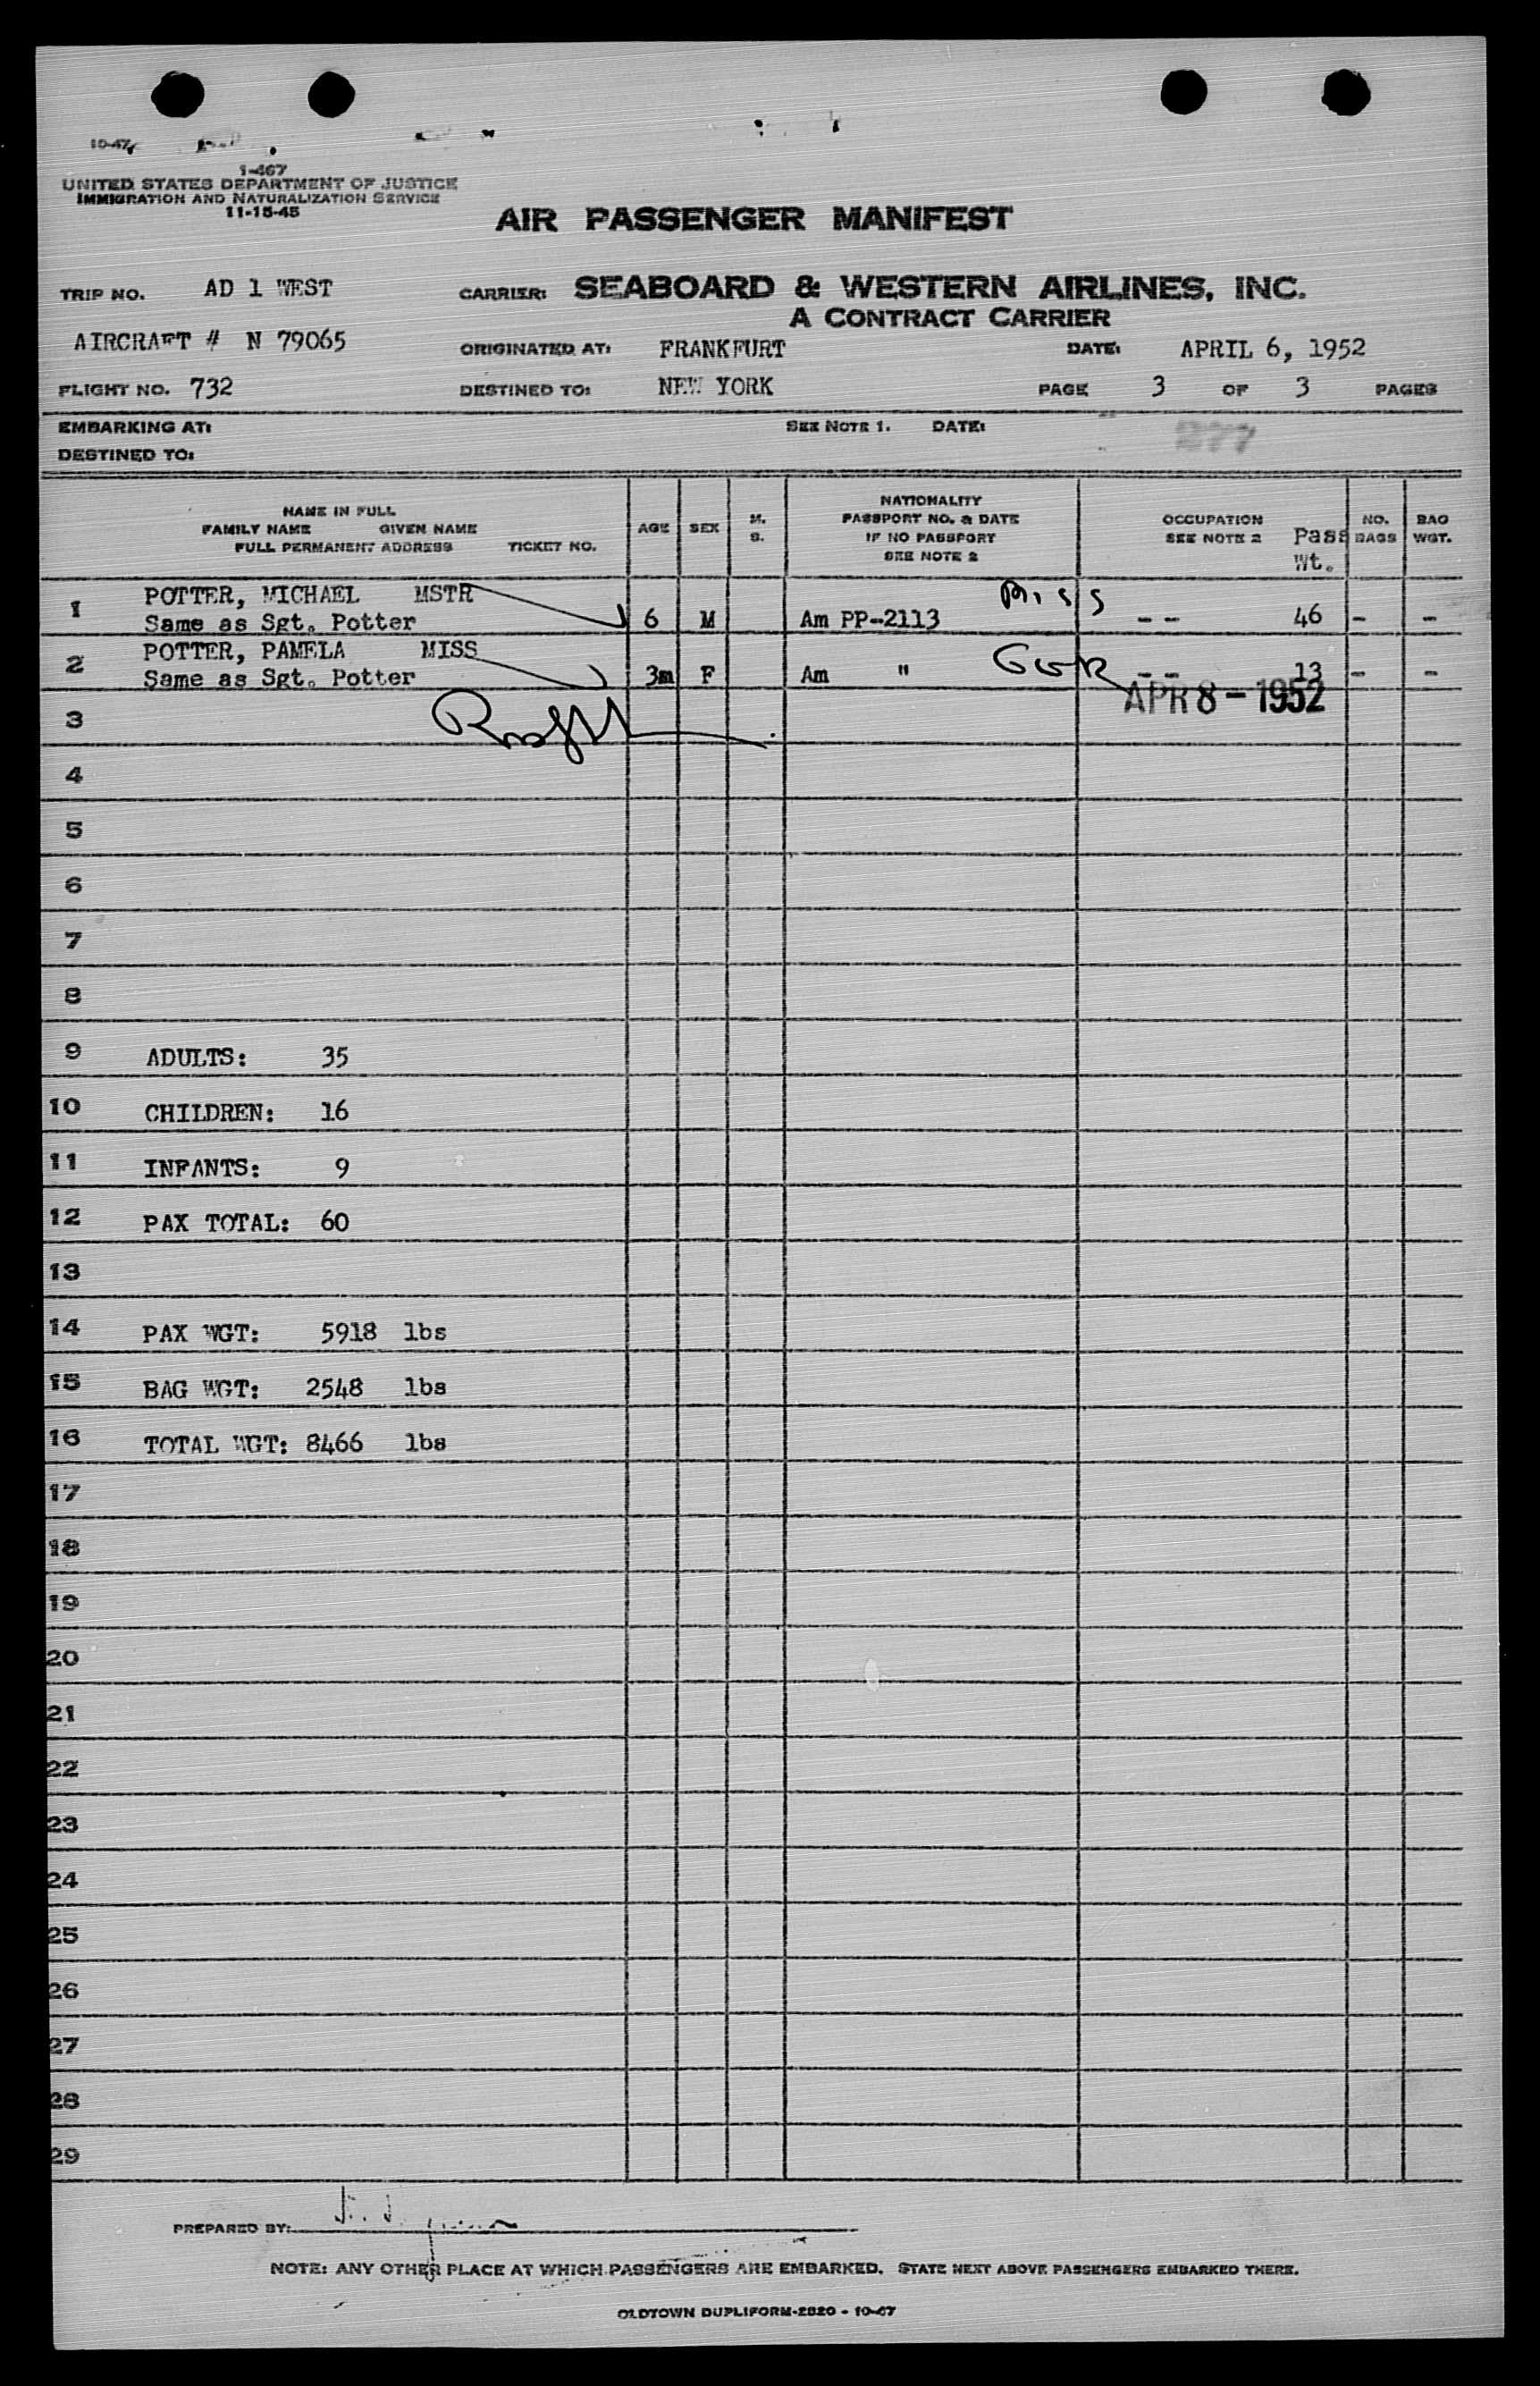 10-47
1-467
UNITED STATES DEPARTMENT OF JUSTICE
IMMIGRATION AND NATURALIZATION SERVICE
11-15-45
AIR PASSENGER MANIFEST
TRIP NO. AD 1 WEST CARRIER: SEABOARD & WESTERN AIRLINES, INC.
A CONTRACT CARRIER
AIRCRAFT # N 79065 ORIGINATED AT: FRANKFURT DATE: APRIL 6, 1952
FLIGHT NO. 732 DESTINED TO: NEW YORK PAGE 3 OF 3 PAGES
EMBARKING AT: SEE NOTE 1. DATE: 277
DESTINED TO:
NAME IN FULL
FAMILY NAME GIVEN NAME
FULL PERMANENT ADDRESS TICKET NO.
AGE
SEX
M.
S.
NATIONALITY
PASSPORT NO. & DATE
IF NO PASSPORT
SEE NOTE 2
OCCUPATION
SEE NOTE 2
Pass
Wt.
NO.
BAGS
BAG
WGT.
1 POTTER, MICHAEL MSTR
Same as Sgt. Potter 6 M Am PP-2113 -- 46 - -
2 POTTER, PAMELA MISS
Same as Sgt. Potter 3m F Am " -- 13 - -
APR 8 - 1952
3
4
5
6
7
8
9 ADULTS: 35
10 CHILDREN: 16
11 INFANTS: 9
12 PAX TOTAL: 60
13
14 PAX WGT: 5918 lbs
15 BAG WGT: 2548 lbs
16 TOTAL WGT: 8466 lbs
17
18
19
20
21
22
23
24
25
26
27
28
29
PREPARED BY:
NOTE: ANY OTHER PLACE AT WHICH PASSENGERS ARE EMBARKED. STATE NEXT ABOVE PASSENGERS EMBARKED THERE.
OLDTOWN DUPLIFORM-2820 - 10-47